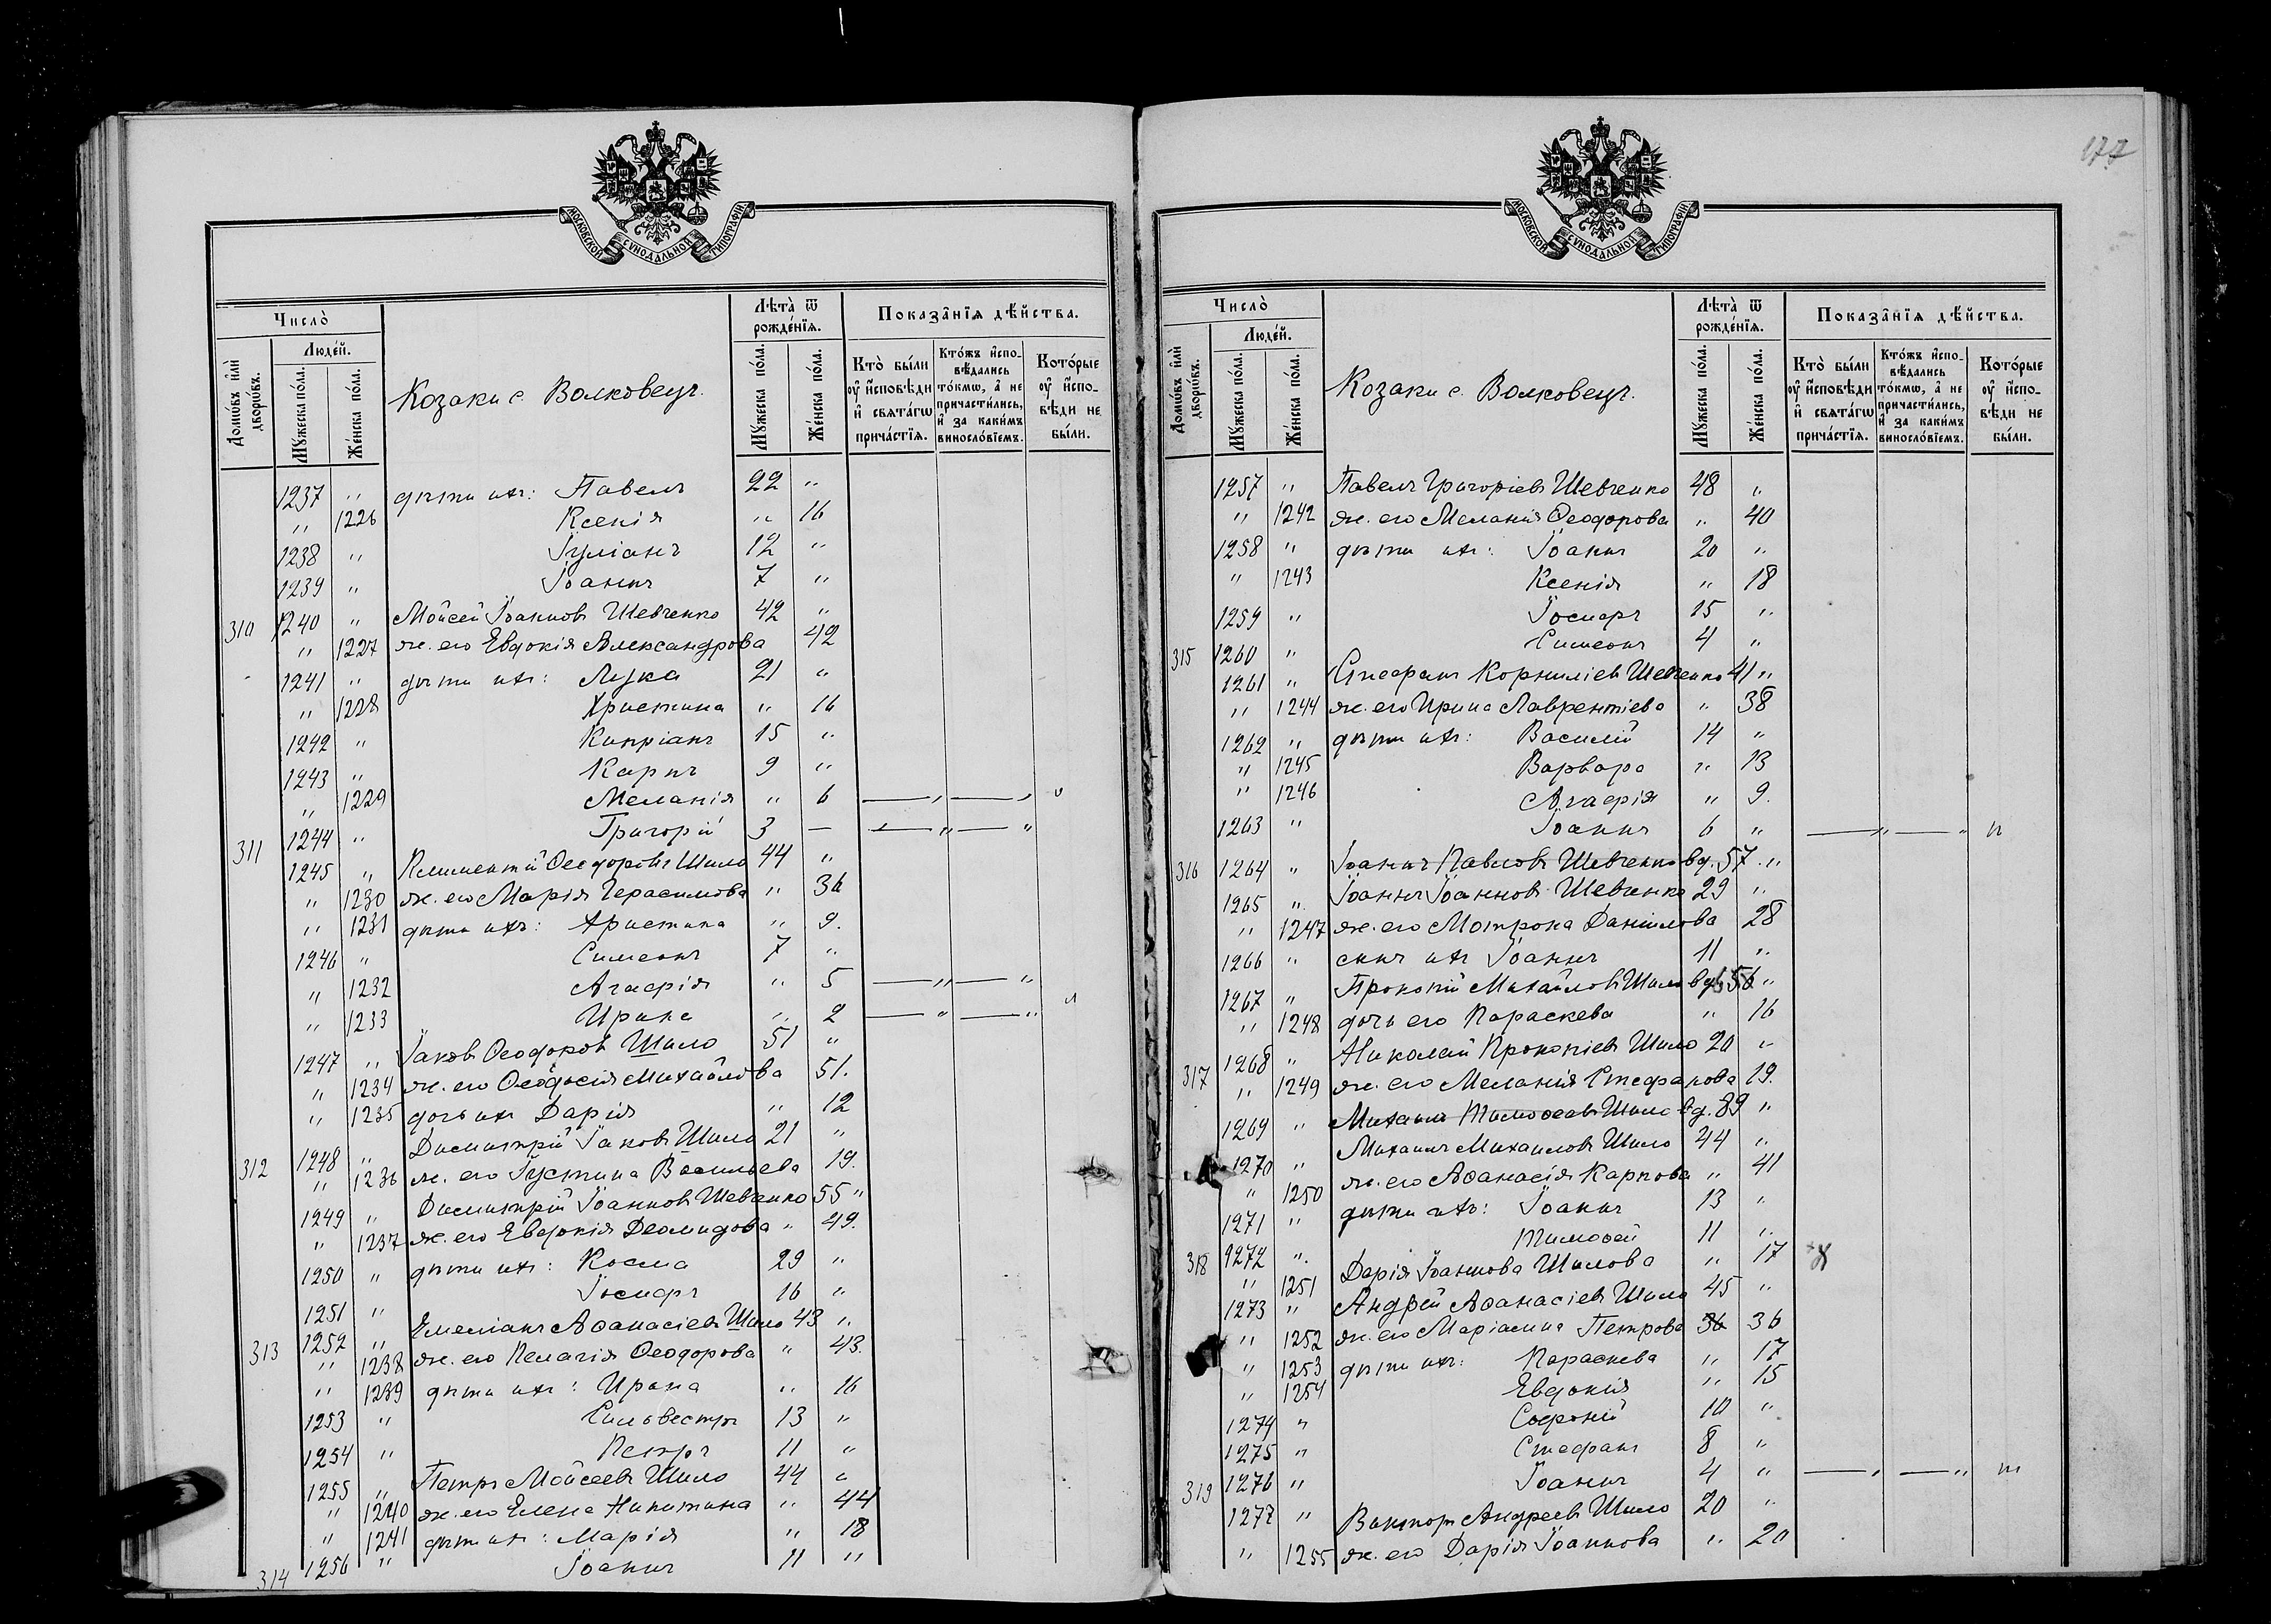 МОСКОВСКОЙ СѴНОДАЛЬНОЙ ТИПОГРАФІИ.
Число̀
Людéй.
Домѡ́въ и҆лѝ дворѡ́въ.
Мꙋ́жеска по́ла.
Же́нска по́ла.
Козаки с. Волковецъ.
Лѣта̀ ѿ рожде́нїѧ.
Мꙋ́жеска по́ла.
Же́нска по́ла.
Показа̑нїѧ дѣ́йства.
Кто̀ бы́ли ᲂу҆ и҆спо́вѣди и҆ свѧта́гѡ прича́стїѧ.
Кто́жъ и҆сповѣдались то́кмѡ, а҆ не причасти́лись, и҆ за каки́мъ винословїемъ.
Кото́рые ᲂу҆ и҆сповѣди не бы́ли.
1237 " дѣти ихъ: Павелъ 22 "
" 1226 Ксенія " 16
1238 " Іуліанъ 12 "
1239 " Іоаннъ 7 "
310 1240 " Мойсей Іоанновъ Шевченко 42 "
" 1227 ж. его Евдокія Александрова 42
1241 " дѣти ихъ: Лука 21 "
" 1228 Христина " 16
1242 " Кипріанъ 15 "
1243 " Карпъ 9 "
" 1229 Меланія " 6 — " — "
1244 " Григорій 3 — — " — "
311 1245 " Климентій Ѳеодоровъ Шило 44 "
" 1230 ж. его Марія Герасимова " 36
" 1231 дѣти ихъ: Христина " 9.
1246 " Симеонъ 7 "
" 1232 Агафія " 5 — " — "
" 1233 Ирина " 2 — " — "
1247 " Іаковъ Ѳеодоровъ Шило 51 "
" 1234 ж. его Ѳеодосія Михайлова 51.
" 1235 дочь ихъ Дарія " 12
312 1248 " Димитрій Іаковъ Шило 21 "
" 1236 ж. его Іустина Васильева 19.
1249 " Димитрій Іоанновъ Шевченко 55 "
" 1237 ж. его Евдокія Деомидова " 49.
1250 " дѣти ихъ: Косма 29 "
1251 " Іосифъ 16 "
313 1252 " Емеліанъ Аѳанасіевъ Шило 43 "
" 1238 ж. его Пелагія Ѳеодорова " 43.
" 1239 дѣти ихъ: Ирина " 16
1253 " Сильвестръ 13 "
1254 " Петръ 11 "
1255 " Петръ Мойсеевъ Шило 44 "
" 1240 ж. его Елена Никитина " 44
" 1241 дѣти ихъ: Марія " 18
314 1256 " Іоаннъ 11 "
177
МОСКОВСКОЙ СѴНОДАЛЬНОЙ ТИПОГРАФІИ.
Число̀
Людéй.
Домѡ́въ и҆лѝ дворѡ́въ.
Мꙋ́жеска по́ла.
Же́нска по́ла.
Козаки с. Волковецъ.
Лѣта̀ ѿ рожде́нїѧ.
Мꙋ́жеска по́ла.
Же́нска по́ла.
Показа̑нїѧ дѣ́йства.
Кто̀ бы́ли ᲂу҆ и҆спо́вѣди и҆ свѧта́гѡ прича́стїѧ.
Кто́жъ и҆сповѣдались то́кмѡ, а҆ не причасти́лись, и҆ за каки́мъ винословїемъ.
Кото́рые ᲂу҆ и҆сповѣди не бы́ли.
1257 " Павелъ Григоріевъ Шевченко 48 "
" 1242 ж. его Меланія Ѳеодорова " 40
1258 " дѣти ихъ: Іоаннъ 20 "
" 1243 Ксенія " 18
1259 " Іосифъ 15 "
315 1260 " Симеонъ 4 "
1261 " Стефанъ Корниліевъ Шевченко 41 "
" 1244 ж. его Ирина Лаврентіева " 38
1262 " дѣти ихъ: Василій 14 "
" 1245 Варвара " 13
" 1246 Агафія " 9.
1263 " Іоаннъ 6 " — " — "
316 1264 " Іоаннъ Павловъ Шевченко вд. 57. "
1265 " Іоаннъ Іоанновъ Шевченко 29 "
" 1247 ж. его Мотрона Даніилова 28
1266 " сынъ ихъ Іоаннъ 11 "
1267 " Прокопій Михайловъ Шило вд. 56 "
" 1248 дочь его Параскева " 16
317 1268 " Николай Прокопіевъ Шило 20 "
" 1249 ж. его Меланія Стефанова 19.
1269 " Михаилъ Тимоѳеевъ Шило вд. 89 "
1270 " Михаилъ Михаиловъ Шило 44 "
" 1250 ж. его Аѳанасія Карпова " 41
1271 " дѣти ихъ: Іоаннъ 13 "
318 1272 " Тимоѳей 11 "
" 1251 Дарія Іоаннова Шилова " 17
1273 " Андрей Аѳанасіевъ Шило 45 "
" 1252 ж. его Маріамна Петрова 36 36
" 1253 дѣти ихъ: Параскева " 17
" 1254 Евдокія " 15
1274 " Софроній 10 "
1275 " Стефанъ 8 "
319 1276 " Іоаннъ 4 " — " — "
1277 " Викторъ Андреевъ Шило 20 "
" 1255 ж. его Дарія Іоаннова " 20